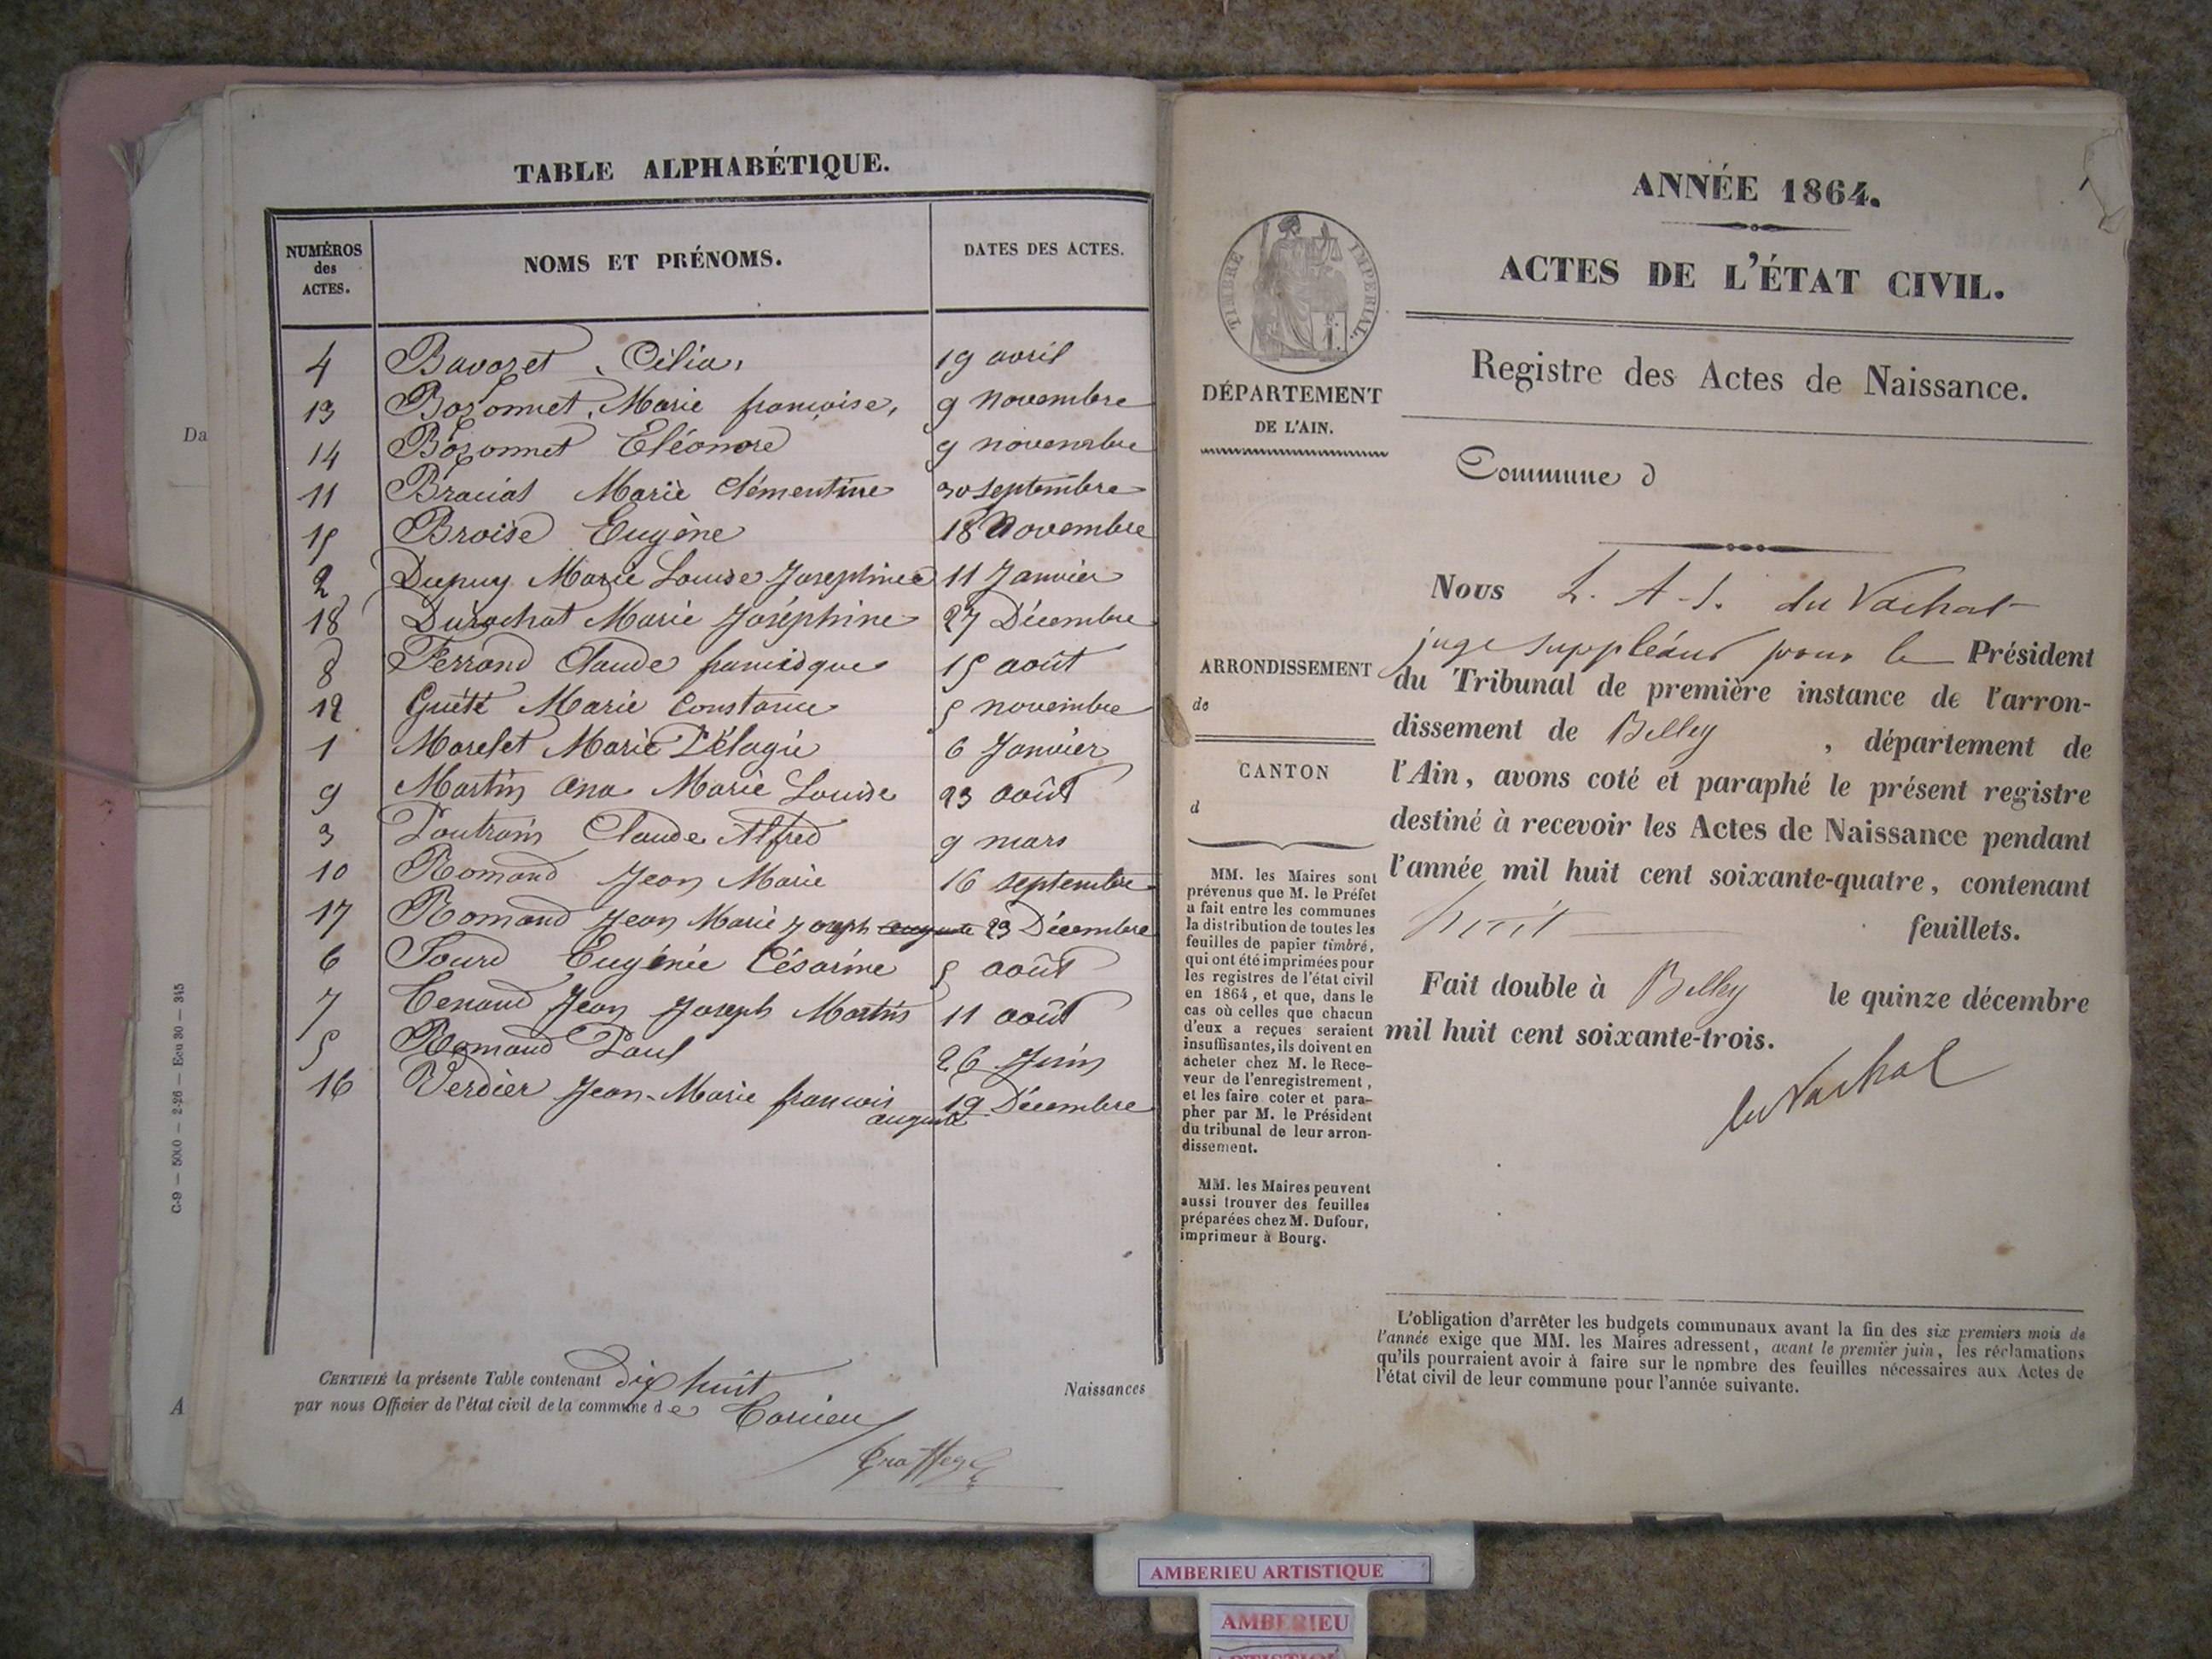 TABLE ALPHABÉTIQUE.
NUMÉROS des ACTES. NOMS ET PRÉNOMS. DATES DES ACTES.
4 Bavozet, Célia, 19 avril
13 Bozonnet, Marie françoise, 9 novembre
14 Bozonnet Eléonore 9 novembre
11 Braciat Marie Clémentine 30 septembre
15 Broise Eugène 18 Novembre
2 Dupuy Marie Louise Joséphine 11 Janvier
18 Durochat Marie Joséphine 27 Décembre
8 Ferrand Claude francisque 15 août
12 Guété Marie Constance 5 novembre
1 Morelet Marie Pélagie 6 Janvier
9 Martin ana Marie Louise 23 août
3 Poutrain Claude Alfred 9 mars
10 Romand Jean Marie 16 septembre
17 Romand Jean Marie Joseph auguste 23 Décembre
6 Sourd Eugénie Césarine 5 août
7 Tenand Jean Joseph Martin 11 août
5 Romand Paul 26 Juin
16 Verdier Jean-Marie françois 19 Décembre
auguste
CERTIFIÉ la présente Table contenant dix huit Naissances
par nous Officier de l'état civil de la commune de
Da
C-9 — 5000 — 2-26 — Ecu 30 — 345
A
ANNÉE 1864.
ACTES DE L'ÉTAT CIVIL.
Registre des Actes de Naissance.
TIMBRE IMPÉRIAL.
DÉPARTEMENT
DE L'AIN.
Commune d
Nous L. A-J. du Vachat
juge suppléant pour le Président
du Tribunal de première instance de l'arron-
dissement de Belley, département de
l'Ain, avons coté et paraphé le présent registre
destiné à recevoir les Actes de Naissance pendant
l'année mil huit cent soixante-quatre, contenant
huit feuillets.
Fait double à Belley le quinze décembre
mil huit cent soixante-trois.
du Vachat
ARRONDISSEMENT
de
CANTON
d
MM. les Maires sont
prévenus que M. le Préfet
a fait entre les communes
la distribution de toutes les
feuilles de papier timbré,
qui ont été imprimées pour
les registres de l'état civil
en 1864, et que, dans le
cas où celles que chacun
d'eux a reçues seraient
insuffisantes, ils doivent en
acheter chez M. le Rece-
veur de l'enregistrement,
et les faire coter et para-
pher par M. le Président
du tribunal de leur arron-
dissement.
MM. les Maires peuvent
aussi trouver des feuilles
préparées chez M. Dufour,
imprimeur à Bourg.
L'obligation d'arrêter les budgets communaux avant la fin des six premiers mois de
l'année exige que MM. les Maires adressent, avant le premier juin, les réclamations
qu'ils pourraient avoir à faire sur le nombre des feuilles nécessaires aux Actes de
l'état civil de leur commune pour l'année suivante.
AMBERIEU ARTISTIQUE
AMBERIEU
ARTISTIQUE